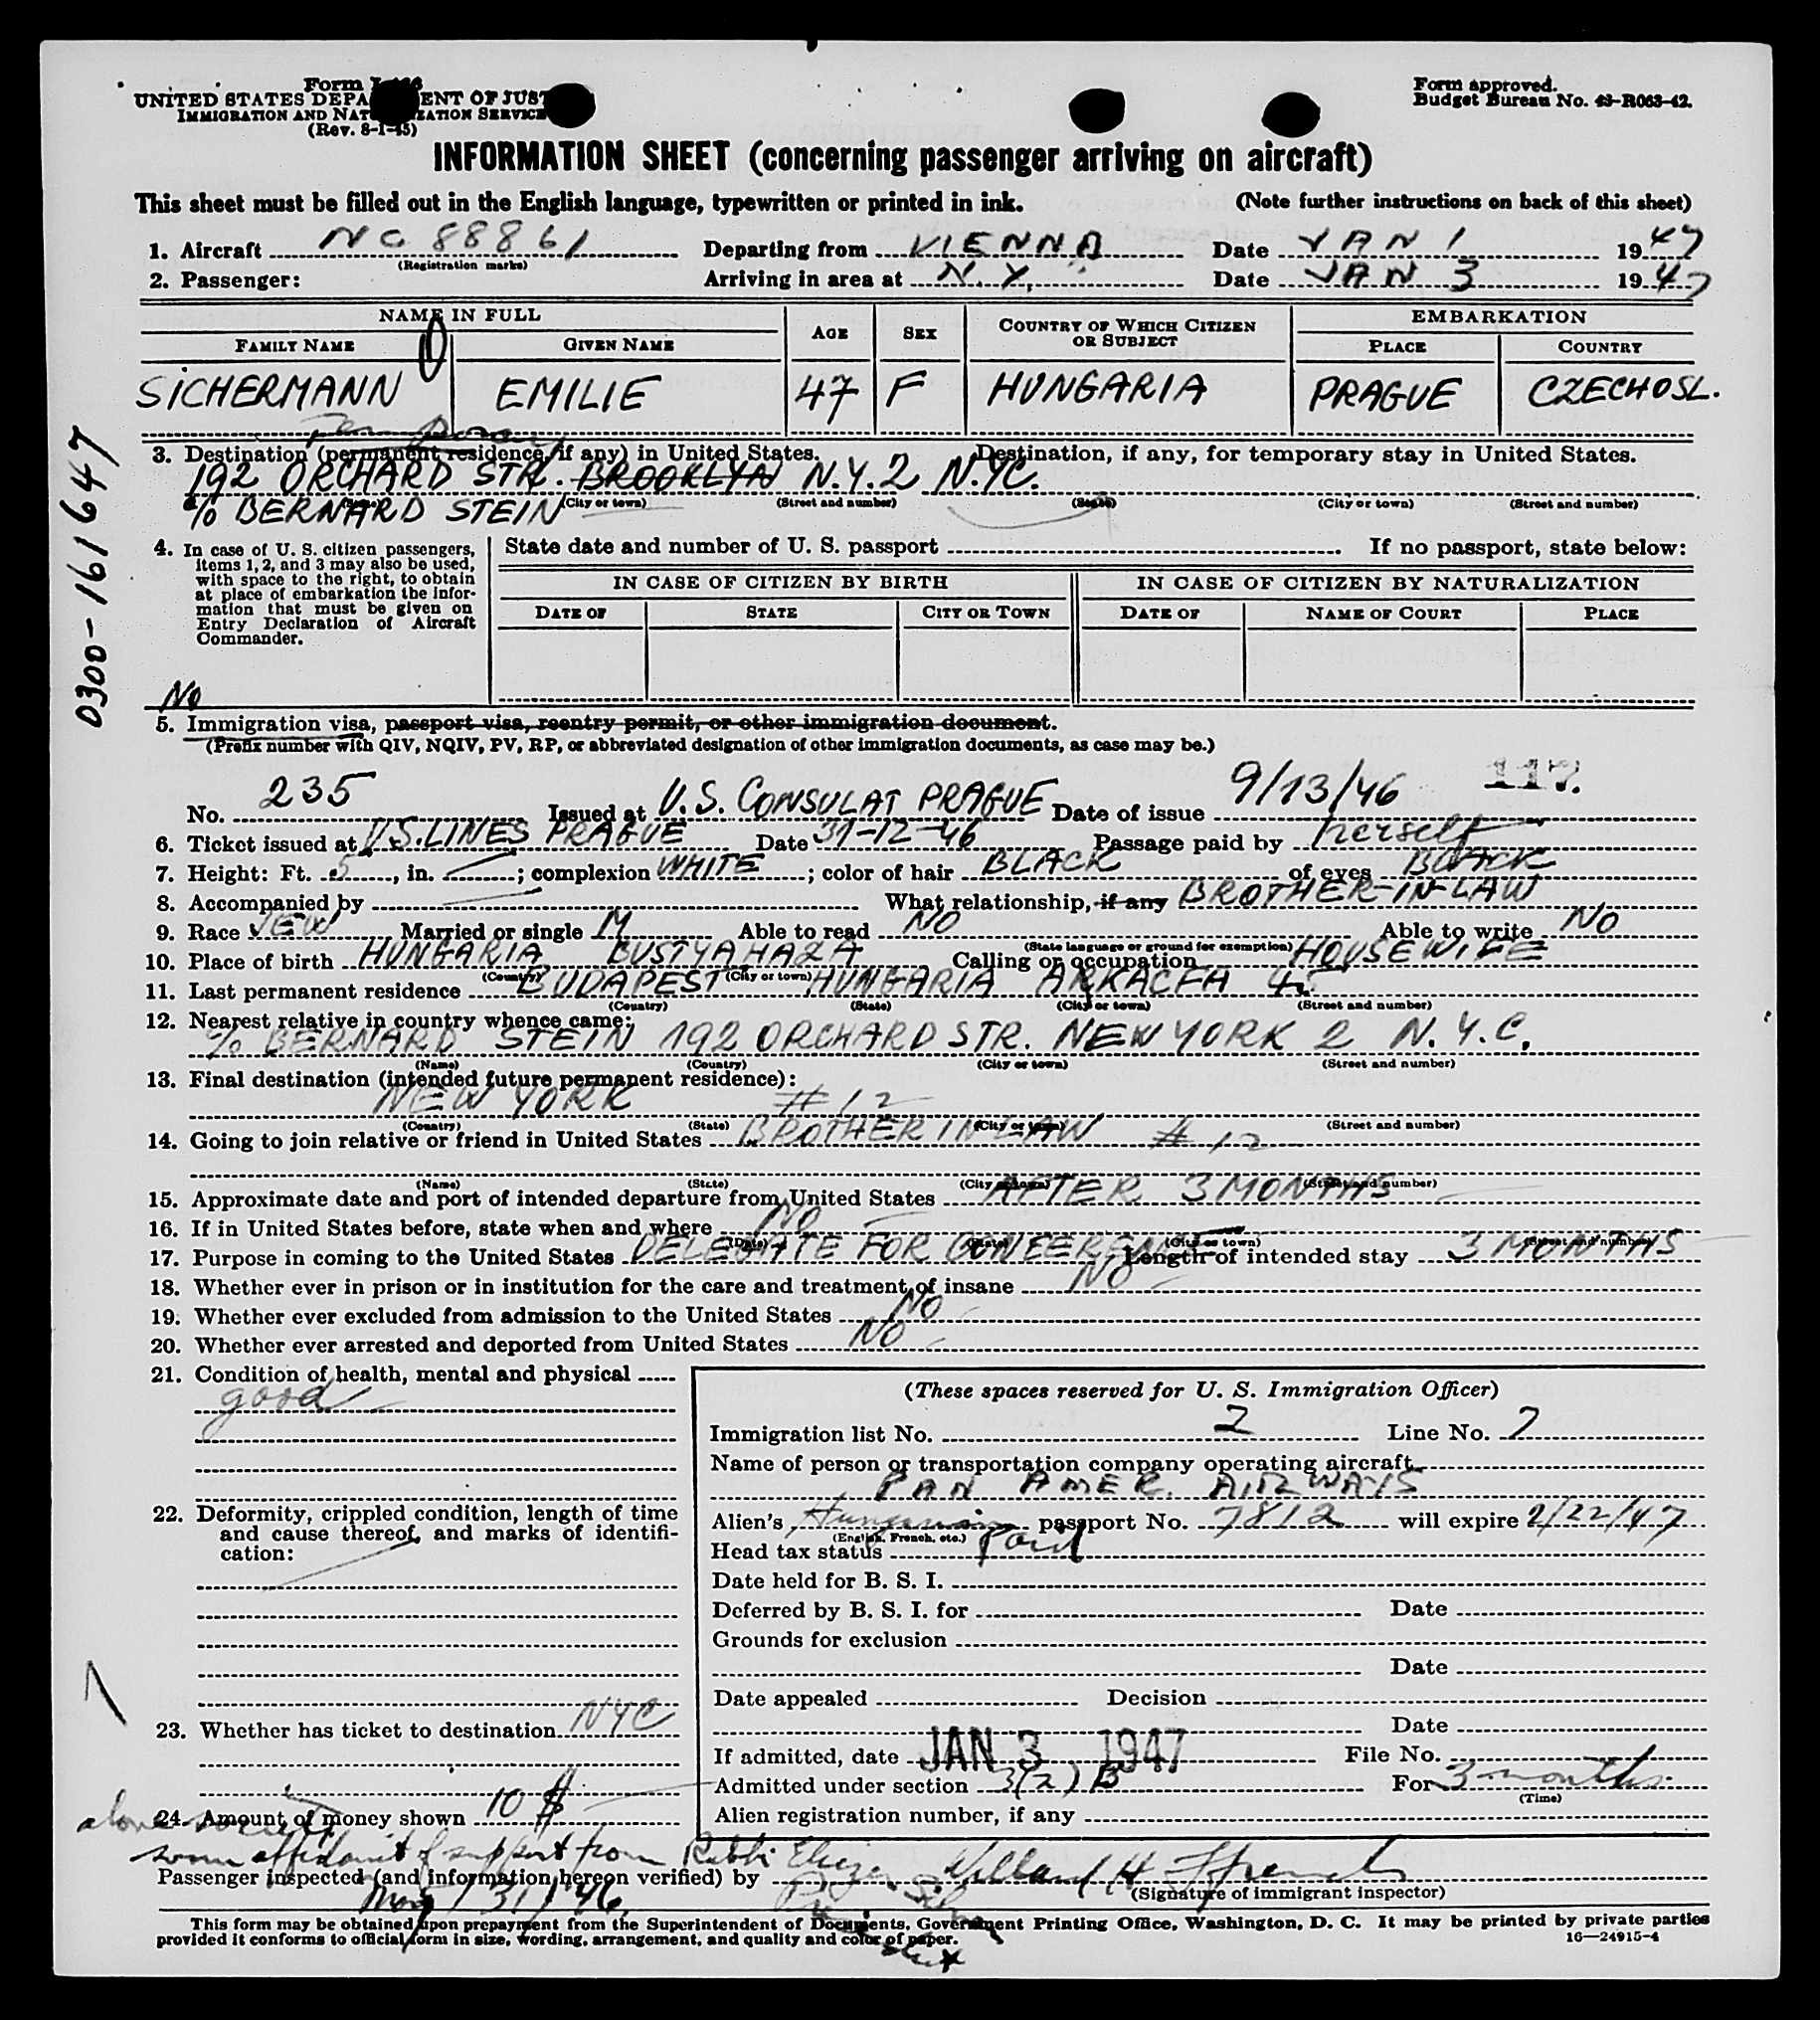 Form approved.
UNITED STATES DEPA ENT OF JUST
Budget Bureau No. 43-R063-42.
IMMIGRATION AND NAT IZATION SERVICE
(Rev. 8-1-45)
INFORMATION SHEET (concerning passenger arriving on aircraft)
This sheet must be filled out in the English language, typewritten or printed in ink. (Note further instructions on back of this sheet)
1. Aircraft NC 88861 Departing from VIENNA Date JAN 1 1947
(Registration marks)
2. Passenger: Arriving in area at N.Y. Date JAN 3 1947
NAME IN FULL AGE SEX COUNTRY OF WHICH CITIZEN OR SUBJECT EMBARKATION
FAMILY NAME GIVEN NAME PLACE COUNTRY
SICHERMANN EMILIE 47 F HUNGARIA PRAGUE CZECHOSL.
3. Destination (permanent residence, if any) in United States. Destination, if any, for temporary stay in United States.
192 ORCHARD STR. BROOKLYN N.Y.2 N.YC.
(City or town) (Street and number) (State) (City or town) (Street and number)
% BERNARD STEIN
0300-161647
4. In case of U. S. citizen passengers, items 1, 2, and 3 may also be used, with space to the right, to obtain at place of embarkation the information that must be given on Entry Declaration of Aircraft Commander.
State date and number of U. S. passport If no passport, state below:
IN CASE OF CITIZEN BY BIRTH IN CASE OF CITIZEN BY NATURALIZATION
DATE OF STATE CITY OR TOWN DATE OF NAME OF COURT PLACE
No
5. Immigration visa, passport visa, reentry permit, or other immigration document.
(Prefix number with QIV, NQIV, PV, RP, or abbreviated designation of other immigration documents, as case may be.)
117.
No. 235 Issued at U.S. CONSULAT PRAGUE Date of issue 9/13/46
6. Ticket issued at U.S.LINES PRAGUE Date 31-12-46 Passage paid by herself
7. Height: Ft. 5, in. ; complexion WHITE; color of hair BLACK of eyes BLACK
8. Accompanied by What relationship, if any BROTHER-IN-LAW
9. Race JEW Married or single M Able to read NO Able to write NO
(State language or ground for exemption)
10. Place of birth HUNGARIA BUSTYAHAZA Calling or occupation HOUSEWIFE
(Country) (City or town)
11. Last permanent residence BUDAPEST HUNGARIA AKACFA 45
(Country) (State) (City or town) (Street and number)
12. Nearest relative in country whence came:
% BERNARD STEIN 192 ORCHARD STR. NEW YORK 2 N.Y.C.
(Name) (Country) (City or town) (Street and number)
13. Final destination (intended future permanent residence):
NEW YORK # 12
(Country) (State) (City or town) (Street and number)
14. Going to join relative or friend in United States BROTHER IN LAW # 12
(Name) (State) (City or town) (Street and number)
15. Approximate date and port of intended departure from United States AFTER 3 MONTHS
16. If in United States before, state when and where NO
(Date) (State) (City or town) (Street and number)
17. Purpose in coming to the United States DELEGATE FOR CONFERENCE Length of intended stay 3 MONTHS
18. Whether ever in prison or in institution for the care and treatment of insane NO
19. Whether ever excluded from admission to the United States NO
20. Whether ever arrested and deported from United States NO
21. Condition of health, mental and physical
good
22. Deformity, crippled condition, length of time and cause thereof, and marks of identification:
23. Whether has ticket to destination NYC
24. Amount of money shown 10 $
(These spaces reserved for U. S. Immigration Officer)
Immigration list No. 2 Line No. 7
Name of person or transportation company operating aircraft
PAN AMER. AIRWAYS
Alien's Hungarian passport No. 7812 will expire 2/22/47
(English, French, etc.)
Head tax status Paid
Date held for B. S. I.
Deferred by B. S. I. for Date
Grounds for exclusion
Date
Date appealed Decision
Date
If admitted, date JAN 3 1947 File No.
Admitted under section 3(2) B For 3 months
(Time)
Alien registration number, if any
affidavit of support from Rabbi
Passenger inspected (and information hereon verified) by
(Signature of immigrant inspector)
This form may be obtained upon prepayment from the Superintendent of Documents, Government Printing Office, Washington, D. C. It may be printed by private parties
provided it conforms to official form in size, wording, arrangement, and quality and color of paper.
16—24915-4